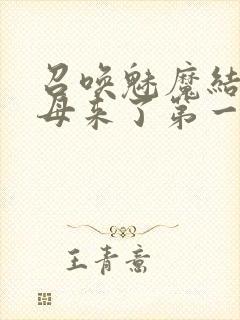 召唤魅魔结
母来了第一
王青意